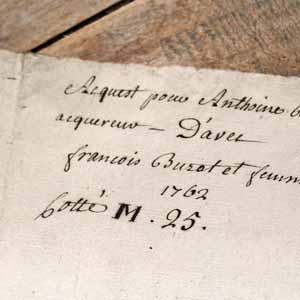 Acquest pour Anthoine
acquereur – D'avec
francois Buzot et femme
1762
Cotté M. 25.